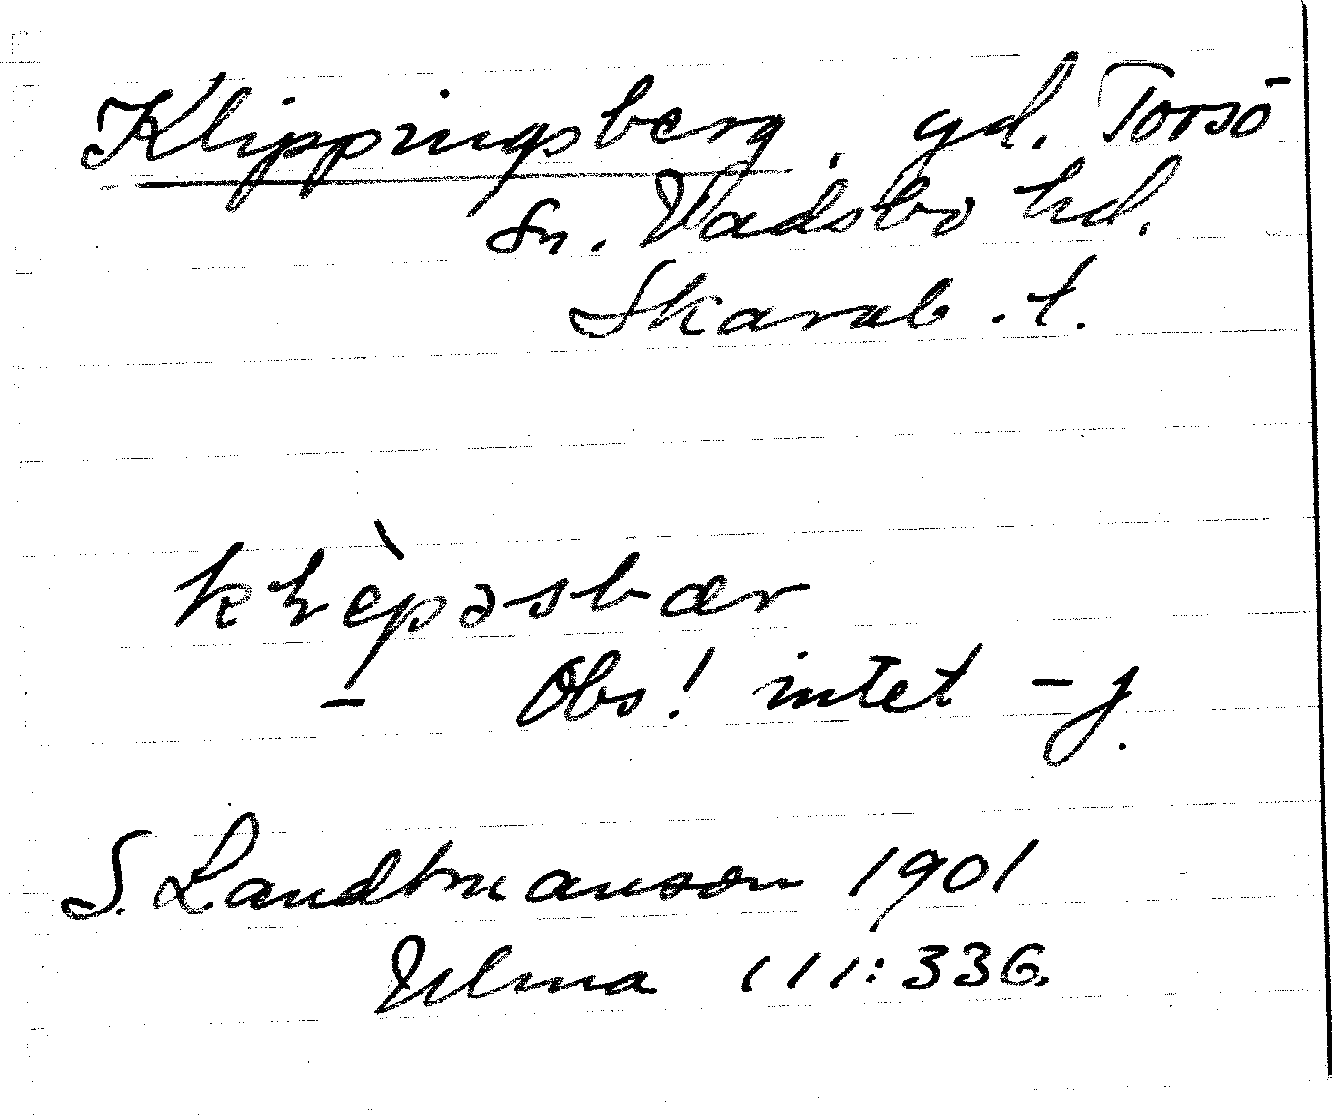 Klippingsberg, gd. Torsö
sn. Vadsbo hd.
Skarab. l.
klèpəsbær
– Obs! intet –j.
S. Landtmanson 1901
Ulma 111:336.